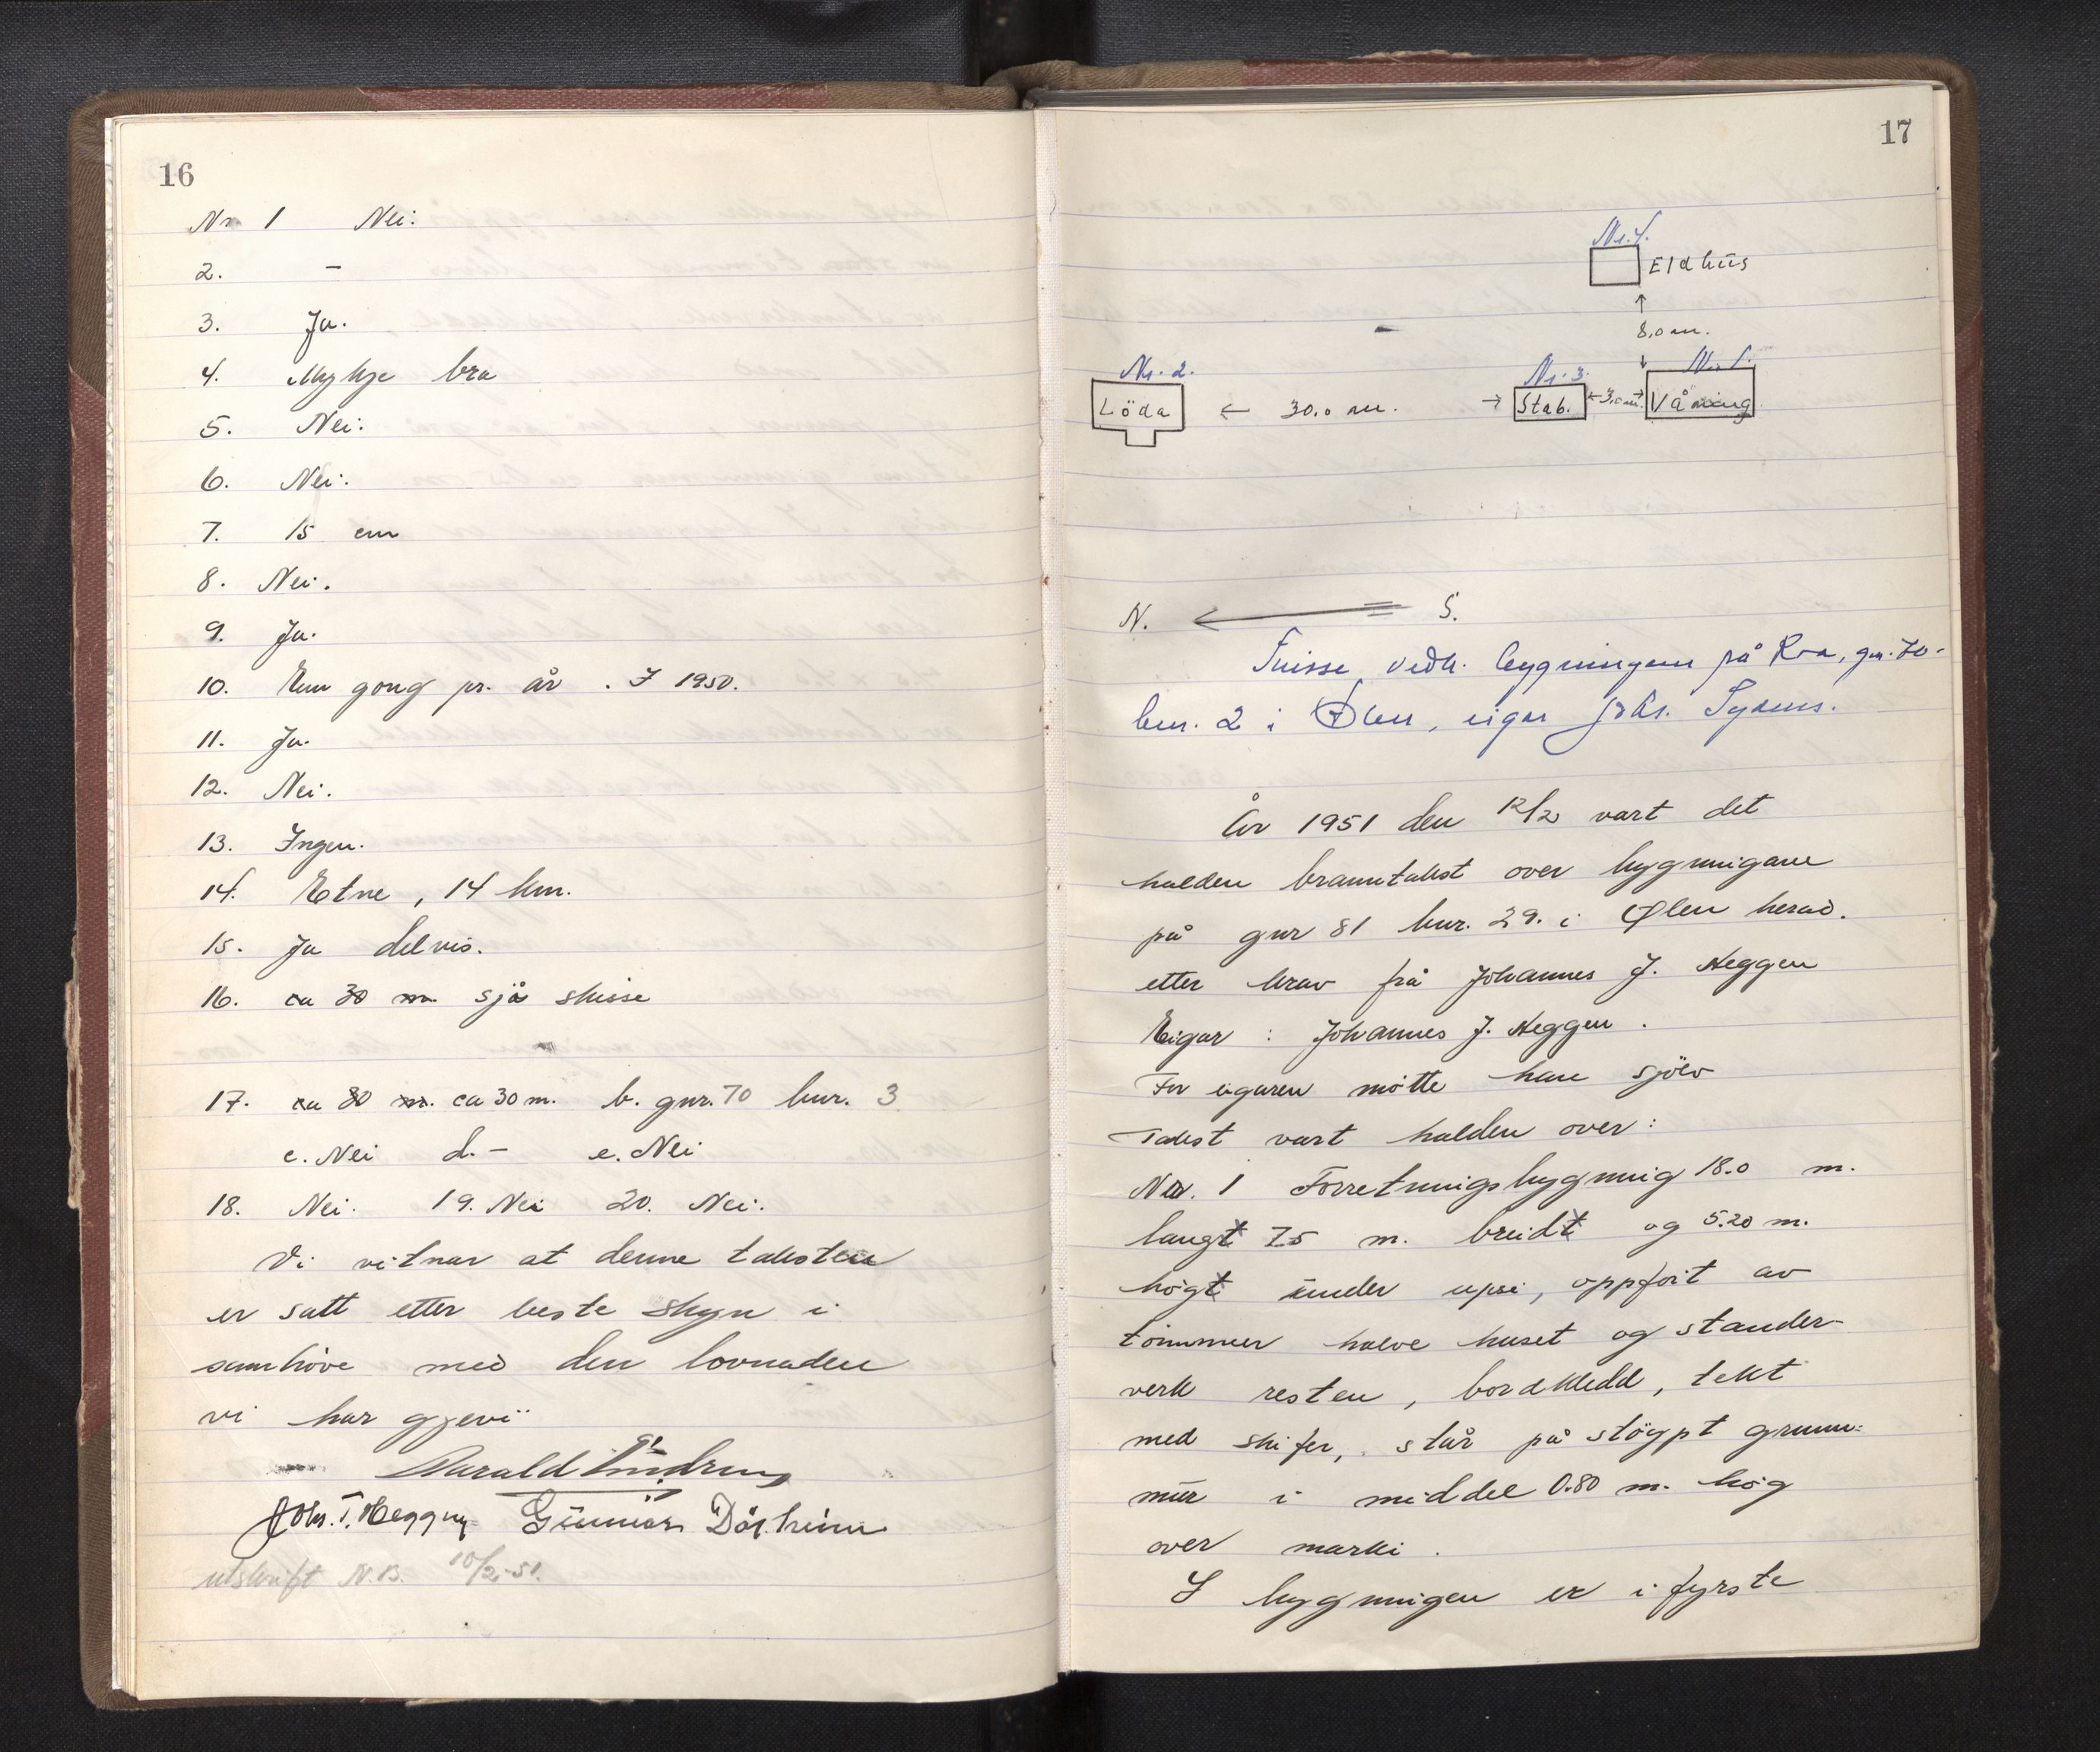 16
Nr 1 Nei.
2. -
3. Ja.
4. Mykje bra
5. Nei.
6. Nei.
7. 15 cm
8. Nei.
9. Ja.
10. Ein gong pr. år. I 1950.
11. Ja.
12. Nei.
13. Ingen.
14. Etne, 14 km.
15. Ja delvis.
16. ca 30 m. sjå skisse
17. ca 80 m. ca 30 m. b. gnr. 70 bnr. 3
c. Nei d. - e. Nei
18. Nei. 19. Nei 20. Nei.
Vi vitnar at denne taksten
er satt etter beste skyn i
samhöve med den lovnaden
vi har gjevi
Harald
Joh. T. Heggen Gunnar
utskrift N.B. 10/2-51.
17
Nr. 4.
Eldhus
8,0 m.
Nr. 2. Nr. 3. Nr. 1.
Löda ← 30.0 m. → Stab. ← 3,0 m. → Våning
N. S.
vedk. bygningen på Raa, gnr. 70-
bnr. 2 i Ølen, eigar Johs.
År 1951 den 12/2 vart det
halden branntakst over bygningane
på gnr 81 bnr. 29. i Ølen herad.
etter krav frå Johannes J. Heggen
Eigar : Johannes J. Heggen.
For eigaren mötte han sjölv
Takst vart halden over:
Nr. 1 Forretningsbygning 18.0 m.
langt 7.5 m. breidt og 5.20 m.
högt under upsi, oppfört av
tömmer halve huset og stander-
verk resten, bordkledd, tekt
med skifer, står på stöypt grunn-
mur i middel 0.80 m. hög
over marki.
I bygningen er i fyrste